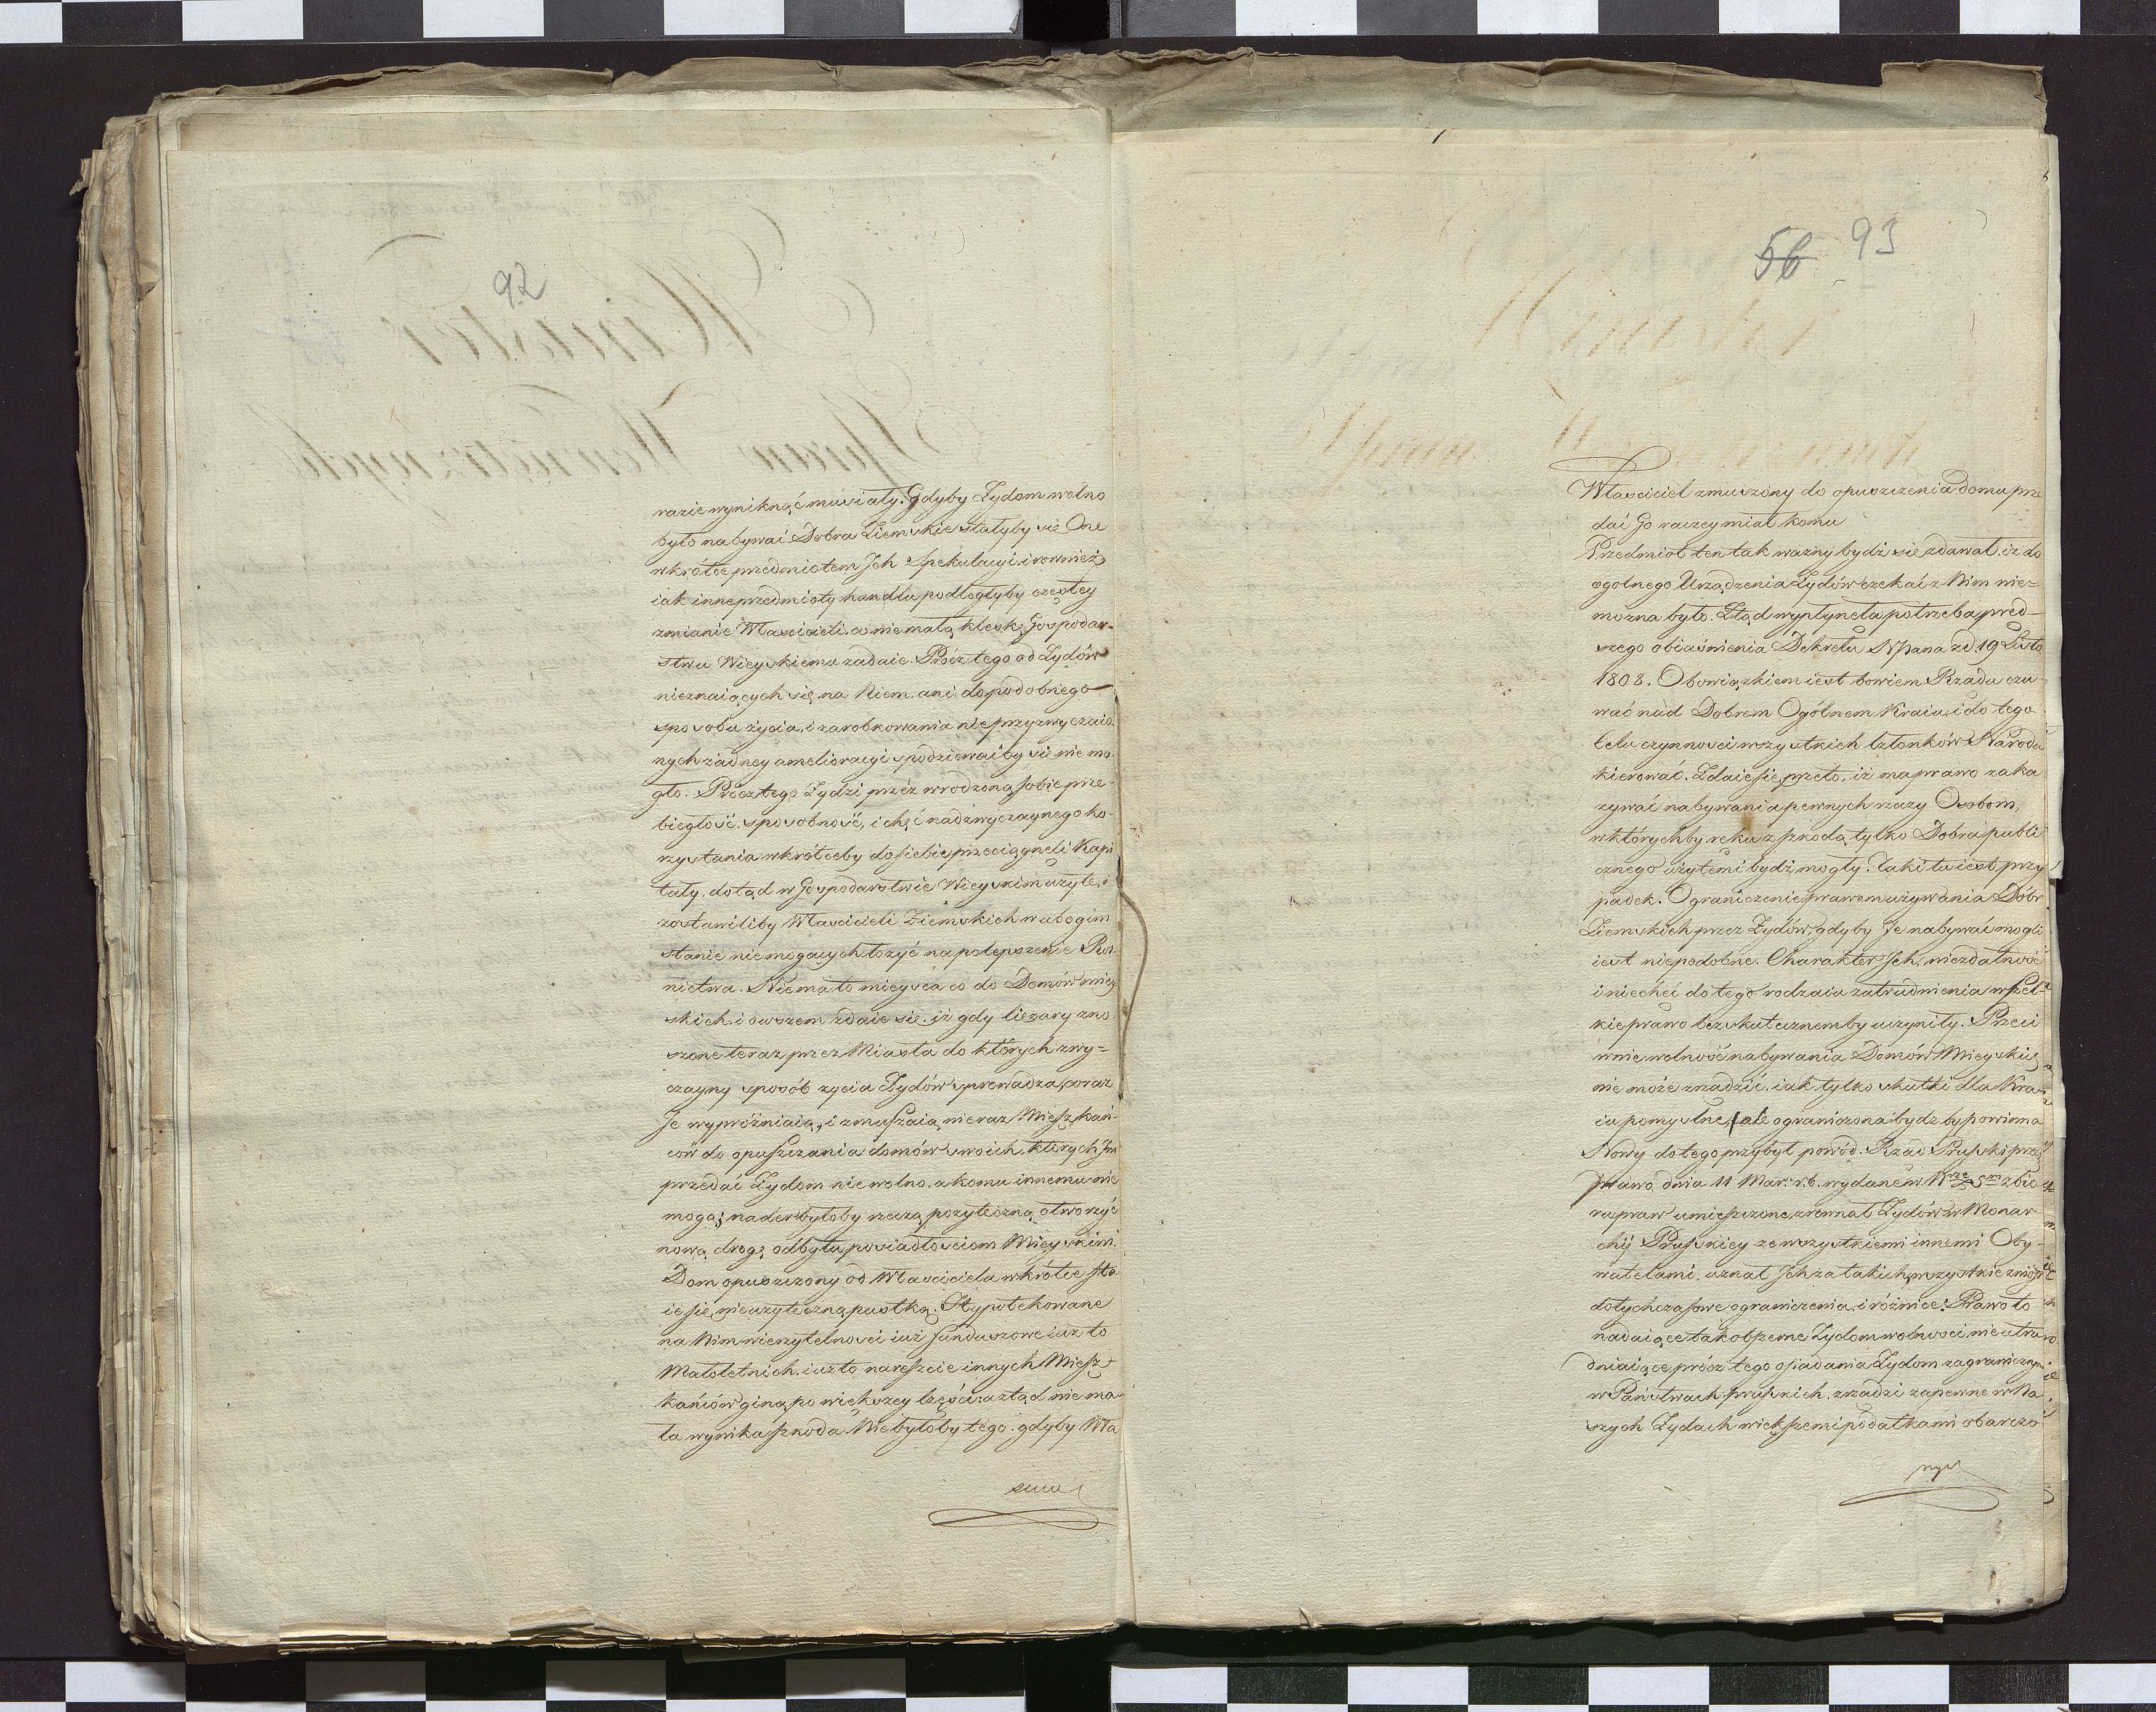 92
razie wyniknąć musiały. Gdyby Żydom wolno
było nabywać Dobra Ziemskie stałyby się One
wkrótce przedmiotem Jch Spekulacyi i rownież
iak inne przedmioty handlu podległyby częstey
zmianie Włascicieli, co niemałą klęskę Gospodar-
stwu Wieyskiemu zadaie. Prócz tego od Żydów
nieznaiących się na Niem, ani do podobnego
sposobu życia, i zarobkowania nieprzyzwyczaio-
nych żadney amelioracyi spodziewać by się nie mo-
gło. Prócz tego Żydzi przéz wrodzoną sobie prze-
biegłość, sposobność, i chęć nadzwyczaynego ko-
rzystania wkrótceby do siebie przeciągneli Kapi
tały, dotąd w Gospodarstwie Wieyskim użyte, i
zostawiliby Włascicieli Ziemskich w ubogim
stanie nie mogących łożyć na polepszenie Rol
nictwa. Niema to mieysca co do Domów miey
skich, i owszem zdaie się, iż gdy ciężary zno
szone teraz przez Miasta do których zwy=
czayny sposób zycia Żydów sprowadza, coraz
Je wypróżniaią, i zmuszaią nieraz Mieszkań-
ców do opuszczania domów swoich, których Jm
przedać Żydom nie wolno, a komu innemu nie
mogą; nader byłoby rzeczą pożyteczną otworzyć
nową drogę odbytu posiadłościom Mieyskim.
Dom opuszczony od Własciciela wkrótce sta
ie się nieużyteczną pustką. Hypotekowane
na Nim wierzytelności iuż funduszowe iuż to
Małoletnich, iuż to nareszcie innych Miesz-
kańców giną po większey części; a ztąd nie ma-
ła wynika szkoda. Nie byłoby tego, gdyby Wła
sciciel
56 93
Własciciel zmuszony do opuszczenia domu prze
dać Go raczey miał komu
Przedmiot ten tak wazny bydź się zdawał, iż do
ogolnego Urządzenia Żydów czekać z Nim nie-
można było. Ztąd wypłyneła potrzeba pręd-
szego obiaśnienia Dekretu NPana zd. 19 Listo
1808. Obowiązkiem iest bowiem Rządu czu
wać nad Dobrem Ogólnem Kraiu, i do tego
Celu czynności wszystkich Członków Narodu
kierować. Zdaie się przeto, iż ma prawo zaka
zywać nabywania pewnych rzeczy Osobom,
w których by ręku z szkodą tylko Dobra publi
cznego użytemi bydź mogły. Taki tu iest przy
padek. Ograniczenie prawem używania Dóbr
Ziemskich przez Żydów, gdyby Je nabywać mogli
iest niepodobne. Charakter Jch, niezdatność
i niechęć do tego rodzaiu zatrudnienia wszel-
kie prawo bezskutecznem by uczyniły. Przeci
wnie wolność nabywania Domów Mieyskich
nie może zrządzić, iak tylko skutki dla Kra-
iu pomyslne, ale ograniczona bydź by powinna
Nowy do tego przybył powód. Rząd Pruski przez
Prawo dnia 11 Mar: r. b. wydane w Nrze 5m zbio
ru praw umieszczone, zrównał Żydów w Monar
chij Pruskiey ze wszystkiemi innemi Oby-
watelami, uznał Jch za takich, wszystkie zniósł
dotychczasowe ograniczenia, i różnice. Prawo to
nadaiące tak obszerne Żydom wolności nie utru
dniaiące prócz tego osiadania Żydom zagranicznym
w Państwach pruskich, zrządzi zapewne w Na
szych Żydach większemi podatkami obarczo
nych